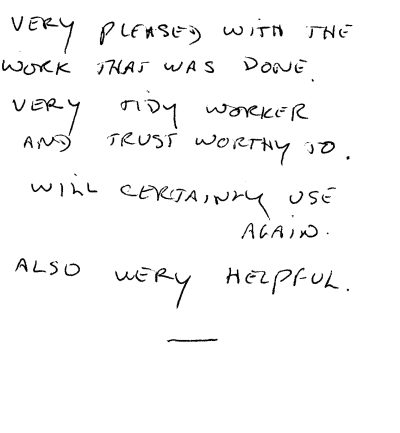 VERY PLEASED WITH THE
WORK THAT WAS DONE.
VERY TIDY WORKER
AND TRUST WORTHY TO.
WILL CERTAINLY USE
AGAIN.
ALSO VERY HELPFUL.